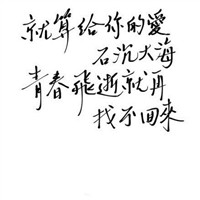 就算給你的愛
石沉大海
青春飛逝就再
找不回來